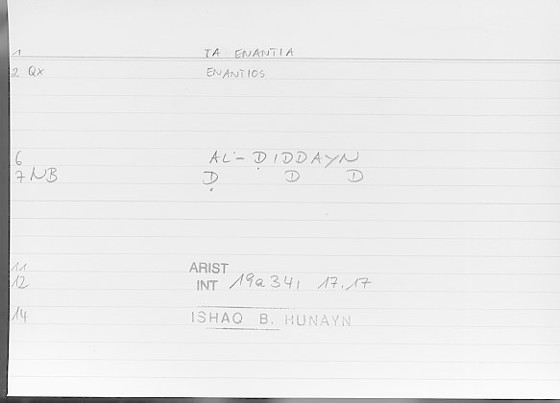 1 TA ENANTIA
2 QX ENANTIOS
6 AL-ḌIDDAYN
7 NB Ḍ D D
11 ARIST
12 INT 19a34, 17.17
14 ISHAQ B. HUNAYN